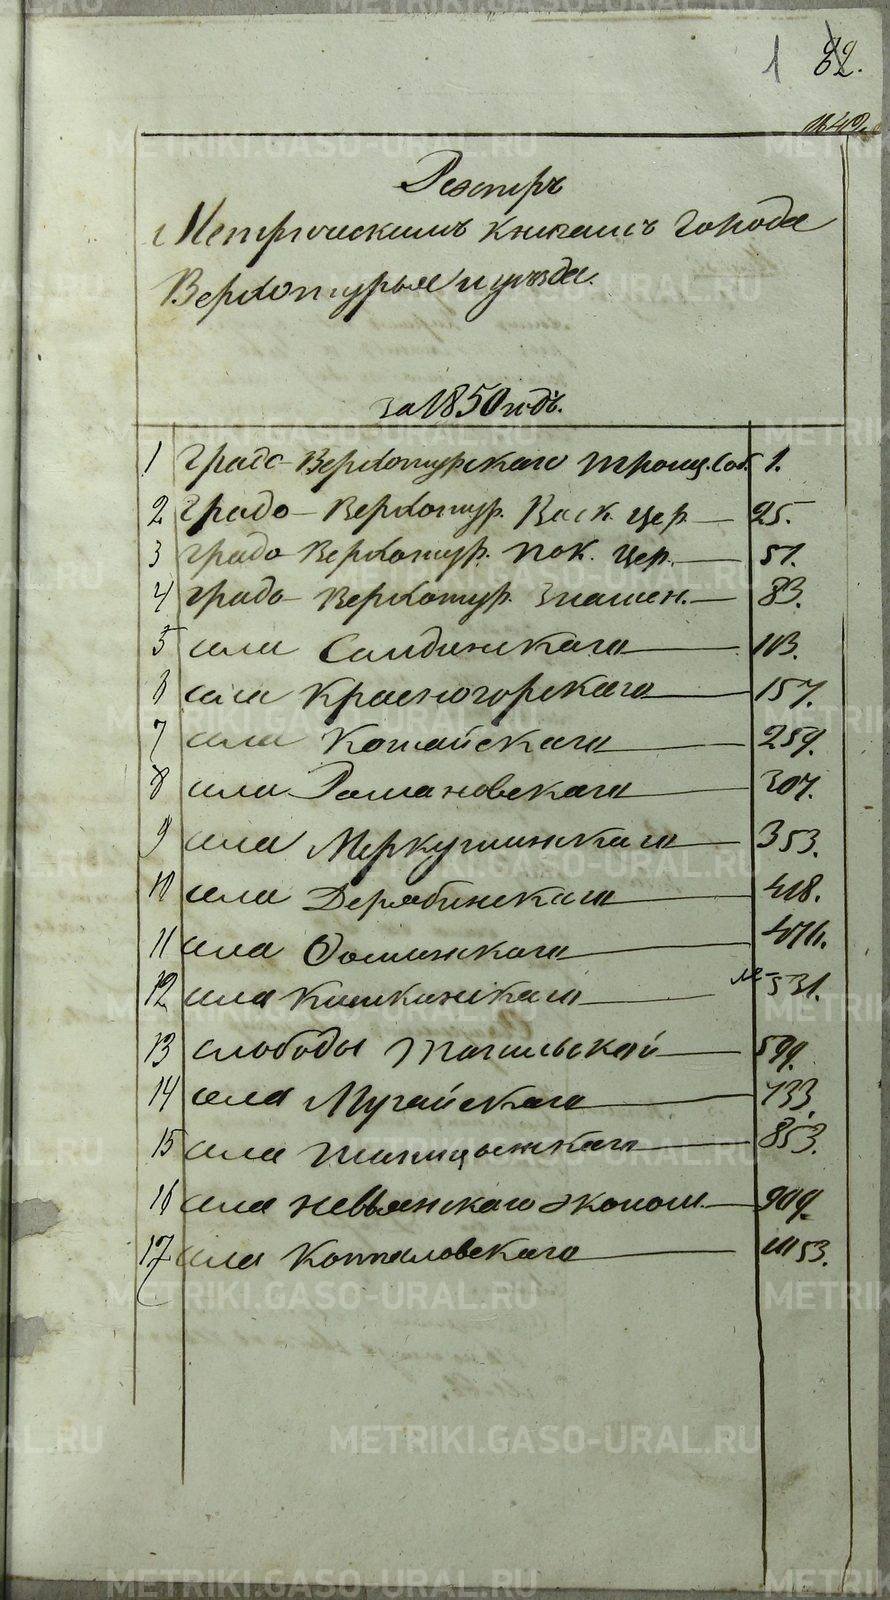 1 82.
Реэстръ
Метрическимъ книгамъ города
Верхотурья и уѣзда.
за 1850 годъ.
1 градо-Верхотурскаго Троиц. Соб. 1.
2 градо-Верхотур. Воск. цер. 25.
3 градо Верхотур. Пок. цер. 51.
4 градо-Верхотур. Знамен. 83.
5 села Салдинскаго 113.
6 села Красногорскаго 157.
7 села Кошайскаго 259.
8 села Романовскаго 307.
9 села Меркушинскаго 353.
10 села Дерябинскаго 418.
11 села Фоминскаго
12 села Кишкинскаго 531.
13 слободы Тагильской 599.
14 села Мугайскаго 733.
15 села Шипицынскаго 853.
16 села Невьянскаго эконом. 909.
17 села Коптеловскаго
METRIKI.GASO-URAL.RU